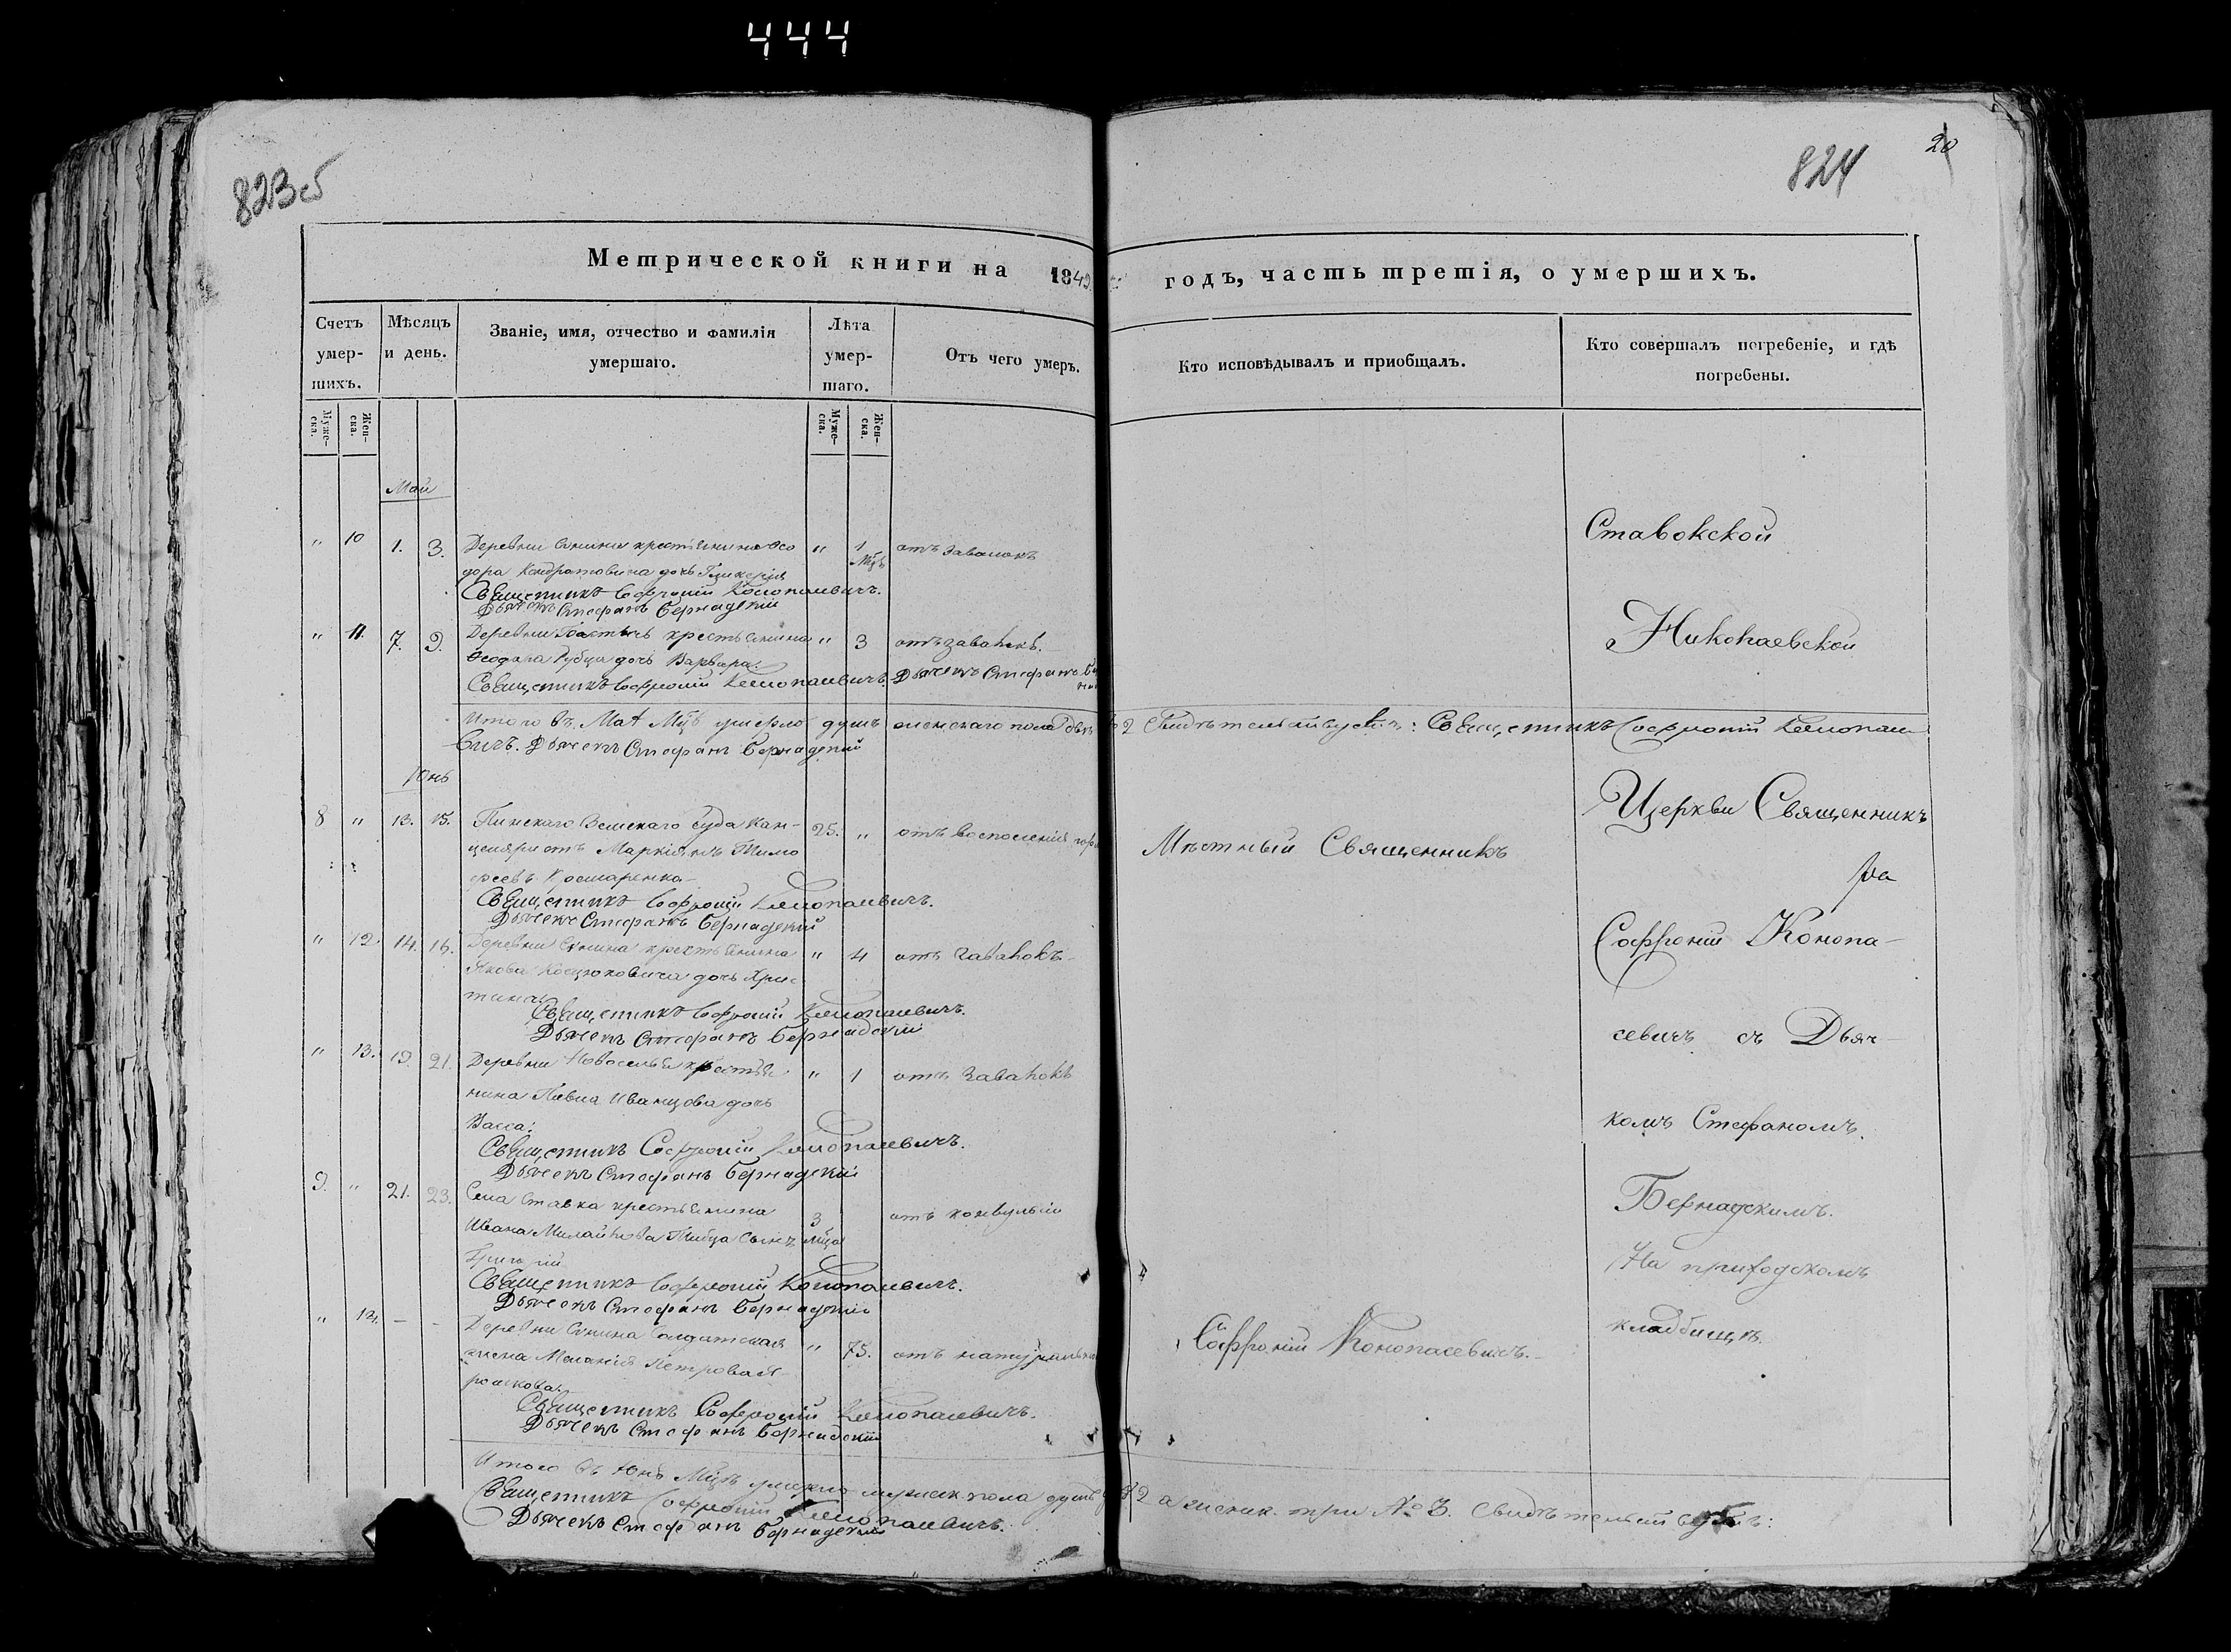 444
823об
824
20
Метрической книги на 1849
годъ, часть третія, о умершихъ.
Счетъ умер-шихъ.
Мѣсяцъ и день.
Званіе, имя, отчество и фамилія
умершаго.
Лѣта умер-шаго.
Отъ чего умеръ.
Кто исповѣдывалъ и приобщалъ.
Кто совершалъ погребеніе, и гдѣ
погребены.
Муже-ска.
Жен-ска.
Муже-ска.
Жен-ска.
Май
" 10 1. 3. Деревни крестьянина Ѳео " 1 отъ заванокъ
дора Кондратовича дочь Гликерія Мца
Священникъ Софроній Конопасевичъ.
Дьячекъ Стефанъ Бернадскій
" 11. 7. 9. Деревни крестьянина " 3 отъ заванокъ.
Ѳеодора Рубца дочь Варвара.
Священникъ Софроній Конопасевичъ. Дьячекъ Стефанъ
Итого въ Маѣ Мцѣ умерло душъ женскаго пола двѣ 2 Свидѣтельствуемъ: Священникъ Софроній Конопасе-
вичъ. Дьячекъ Стефанъ Бернадскій
Юнь
8 " 13. 15. Пинскаго Земскаго Суда Кан- 25. " отъ воспаленія
целяристъ Маркіянъ Тимо
феевъ
Священникъ Софроній Конопасевичъ.
Дьячекъ Стефанъ Бернадскій
" 12. 14. 16. Деревни крестьянина " 4 отъ заванокъ
Якова Коцюковича дочь Хрис
тина.
Священникъ Софроній Конопасевичъ.
Дьячекъ Стефанъ Бернадскій
" 13. 19. 21. Деревни Новоселья крестья " 1 отъ заванокъ
нина Павла Иванцова дочь
Васса.
Священникъ Софроній Конопасевичъ.
Дьячекъ Стефанъ Бернадскій
9. " 21. 23. Села Ставка крестьянина 3 отъ конвульсіи
Ивана сынъ Мца
Григорій
Священникъ Софроній Конопасевичъ.
Дьячекъ Стефанъ Бернадскій
" 14. — - Деревни Солдатская " 75. отъ натуральной
жена Меланія Петрова
Священникъ Софроній Конопасевичъ.
Дьячекъ Стефанъ Бернадскій
Итого въ Юнѣ Мцѣ умерло мужск. пола душъ 2 а женск. три № 3. Свидѣтельствуемъ:
Священникъ Софроній Конопасевичъ.
Дьячекъ Стефанъ Бернадскій
Мѣстный Священникъ
Софроній Конопасевичъ.
Ставокской
Николаевской
Церкви Священникъ
Софроній Конопа-
севичъ съ Дьяч-
комъ Стефаномъ
Бернадскимъ.
На приходскомъ
кладбищѣ.